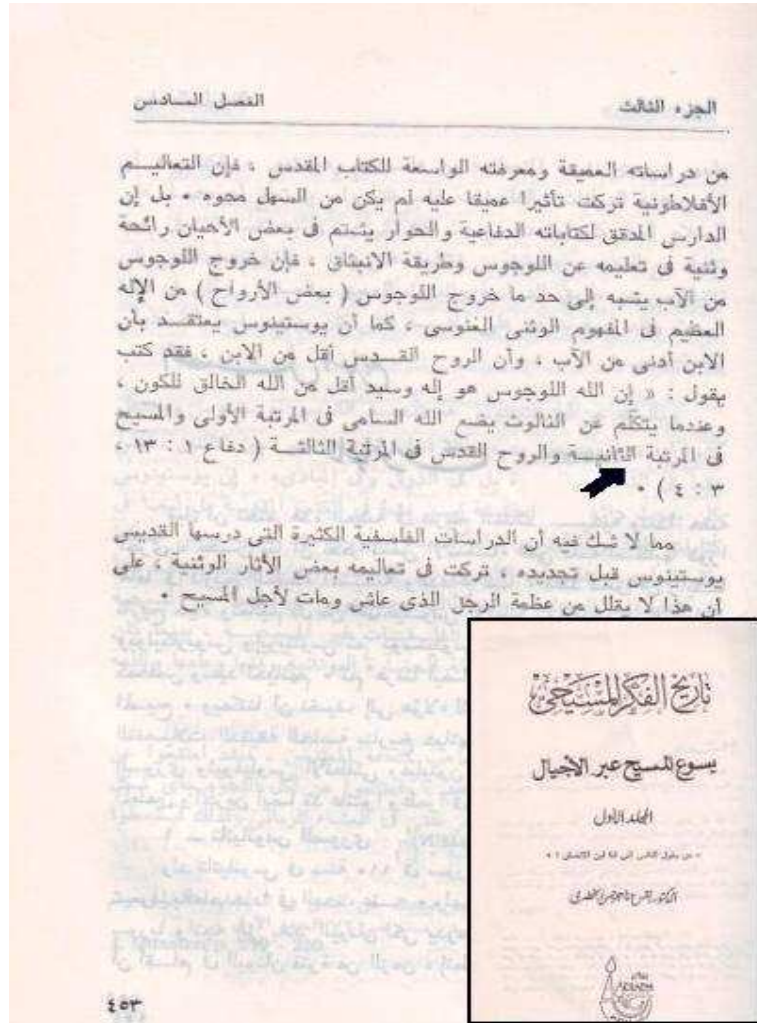 الجزء الثالث
الفصل السادس
من دراساته العميقة ومعرفته الواسعة للكتاب المقدس ، فإن التعاليــم
الأفلاطونية تركت تأثيرا عميقا عليه لم يكن من السهل محوه • بل إن
الدارس المدقق لكتاباته الدفاعية والحوار يشتم فى بعض الأحيان رائحة
وثنية فى تعليمه عن اللوجوس وطريقة الانبثاق ، فإن خروج اللوجوس
من الآب يشبه إلى حد ما خروج اللوجوس ( بعض الأرواح ) من الإله
العظيم فى المفهوم الوثنى الغنوسى ، كما أن يوستينوس يعتقــد بأن
الابن أدنى من الآب ، وأن الروح القــدس أقل من الابن ، فقد كتب
يقول : « إن الله اللوجوس هو إله وسيد أقل من الله الخالق للكون ،
وعندما يتكلم عن الثالوث يضع الله السامى فى المرتبة الأولى والمسيح
فى المرتبة الثانيــة والروح القدس فى المرتبة الثالثــة ( دفاع ١ : ١٣ ،
٣ : ٤ ) •
مما لا شك فيه أن الدراسات الفلسفية الكثيرة التى درسها القديس
يوستينوس قبل تجديده ، تركت فى تعاليمه بعض الآثار الوثنية ، على
أن هذا لا يقلل من عظمة الرجل الذى عاش ومات لأجل المسيح •
تاريخ الفكر المسيحى
يسوع المسيح عبر الأجيال
المجلد الأول
٤٥٣